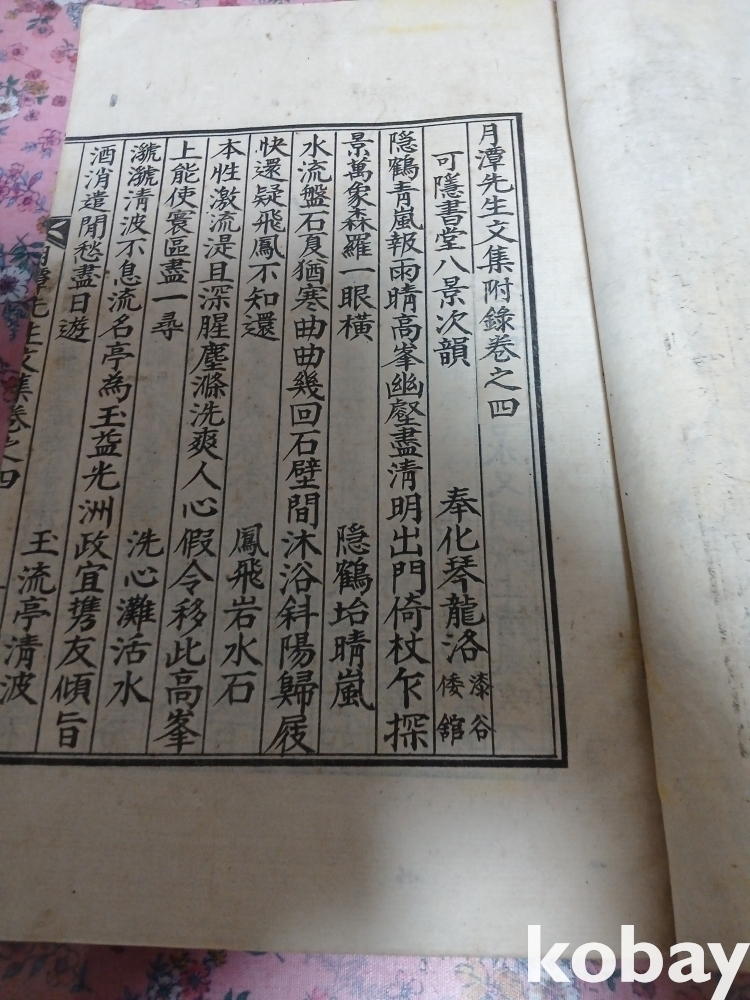 月潭先生文集附錄卷之四
可隱書堂八景次韻 奉化琴龍洛 漆谷 倭館
隱鶴青嵐報雨晴高峯幽壑盡清明出門倚杖乍探
景萬象森羅一眼橫 隱鶴坮晴嵐
水流盤石夏猶寒曲曲幾回石壁間沐浴斜陽歸屐
快還疑飛鳳不知還 鳳飛岩水石
本性激流湜且深腥塵滌洗爽人心假令移此高峯
上能使寰區盡一尋 洗心灘活水
㶁㶁清波不息流名亭為玉益光洲政宜携友傾旨
酒消遣閒愁盡日遊 玉流亭清波
月潭先生文集卷之四
kobay